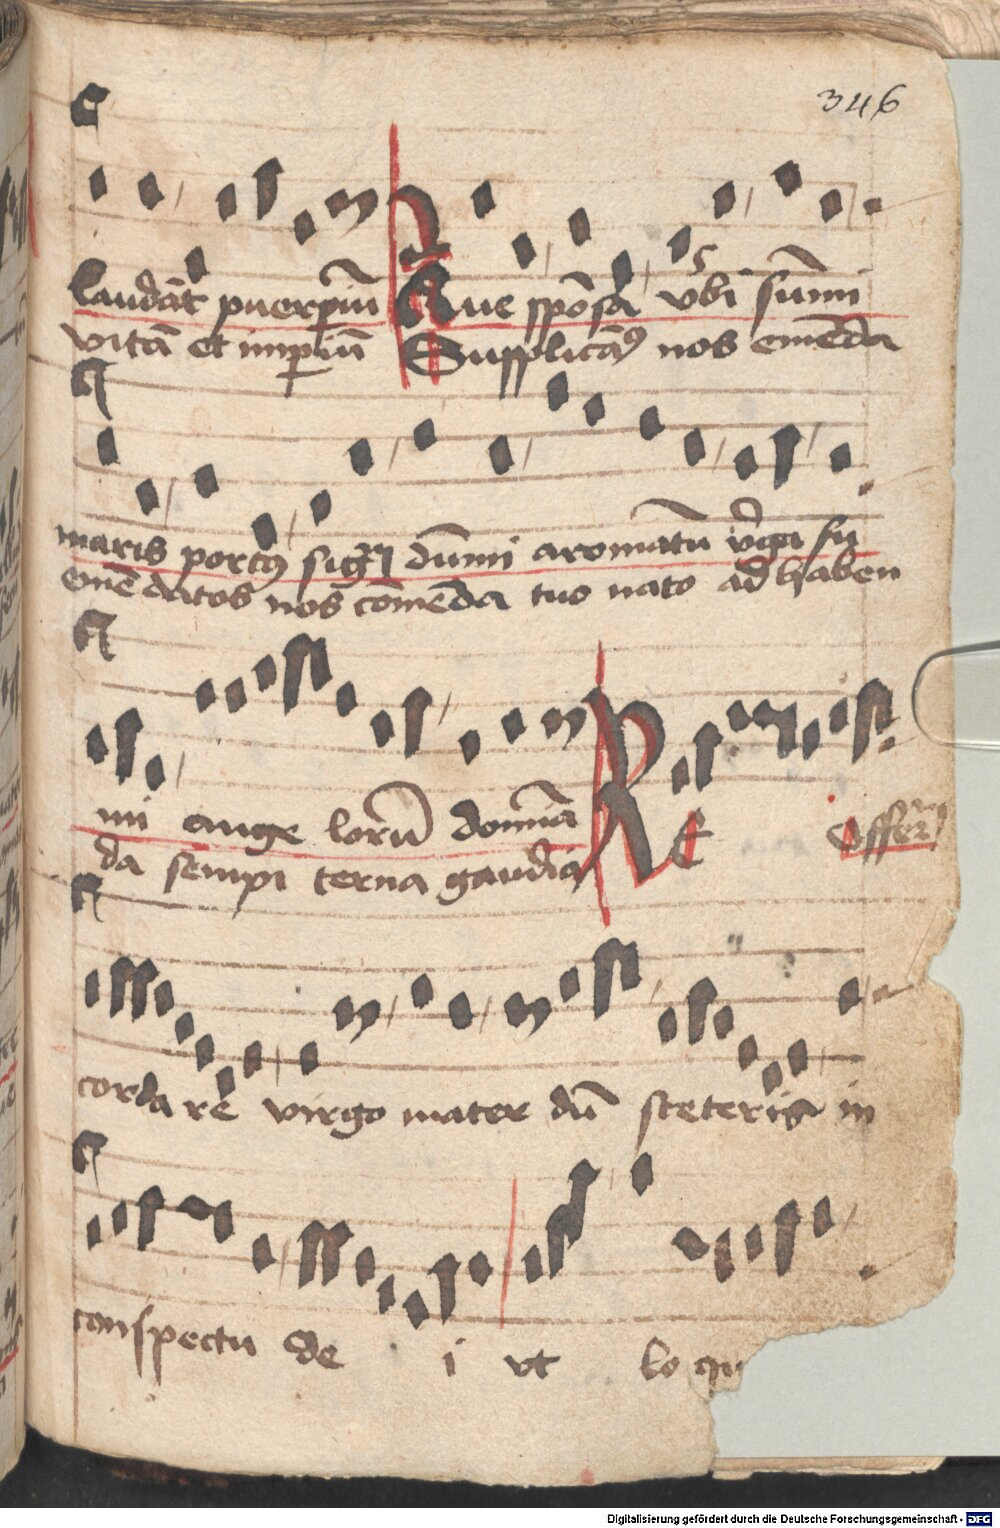 346
laudāt puerꝑiū Aue spōsa vbi sūmi
vitā et imꝑiū Supplicās nos emēda
maris portus siḡ dūmi aromatū v̄ga fu
emēdatos nos cōmēda tuo nato ad haben
mi ange lorū domīa
da sempi terna gaudia
RE offerᵐ
corda re virgo mater dū steteris in
conspectu de i vt lo qu
Digitalisierung gefördert durch die Deutsche Forschungsgemeinschaft - DFG